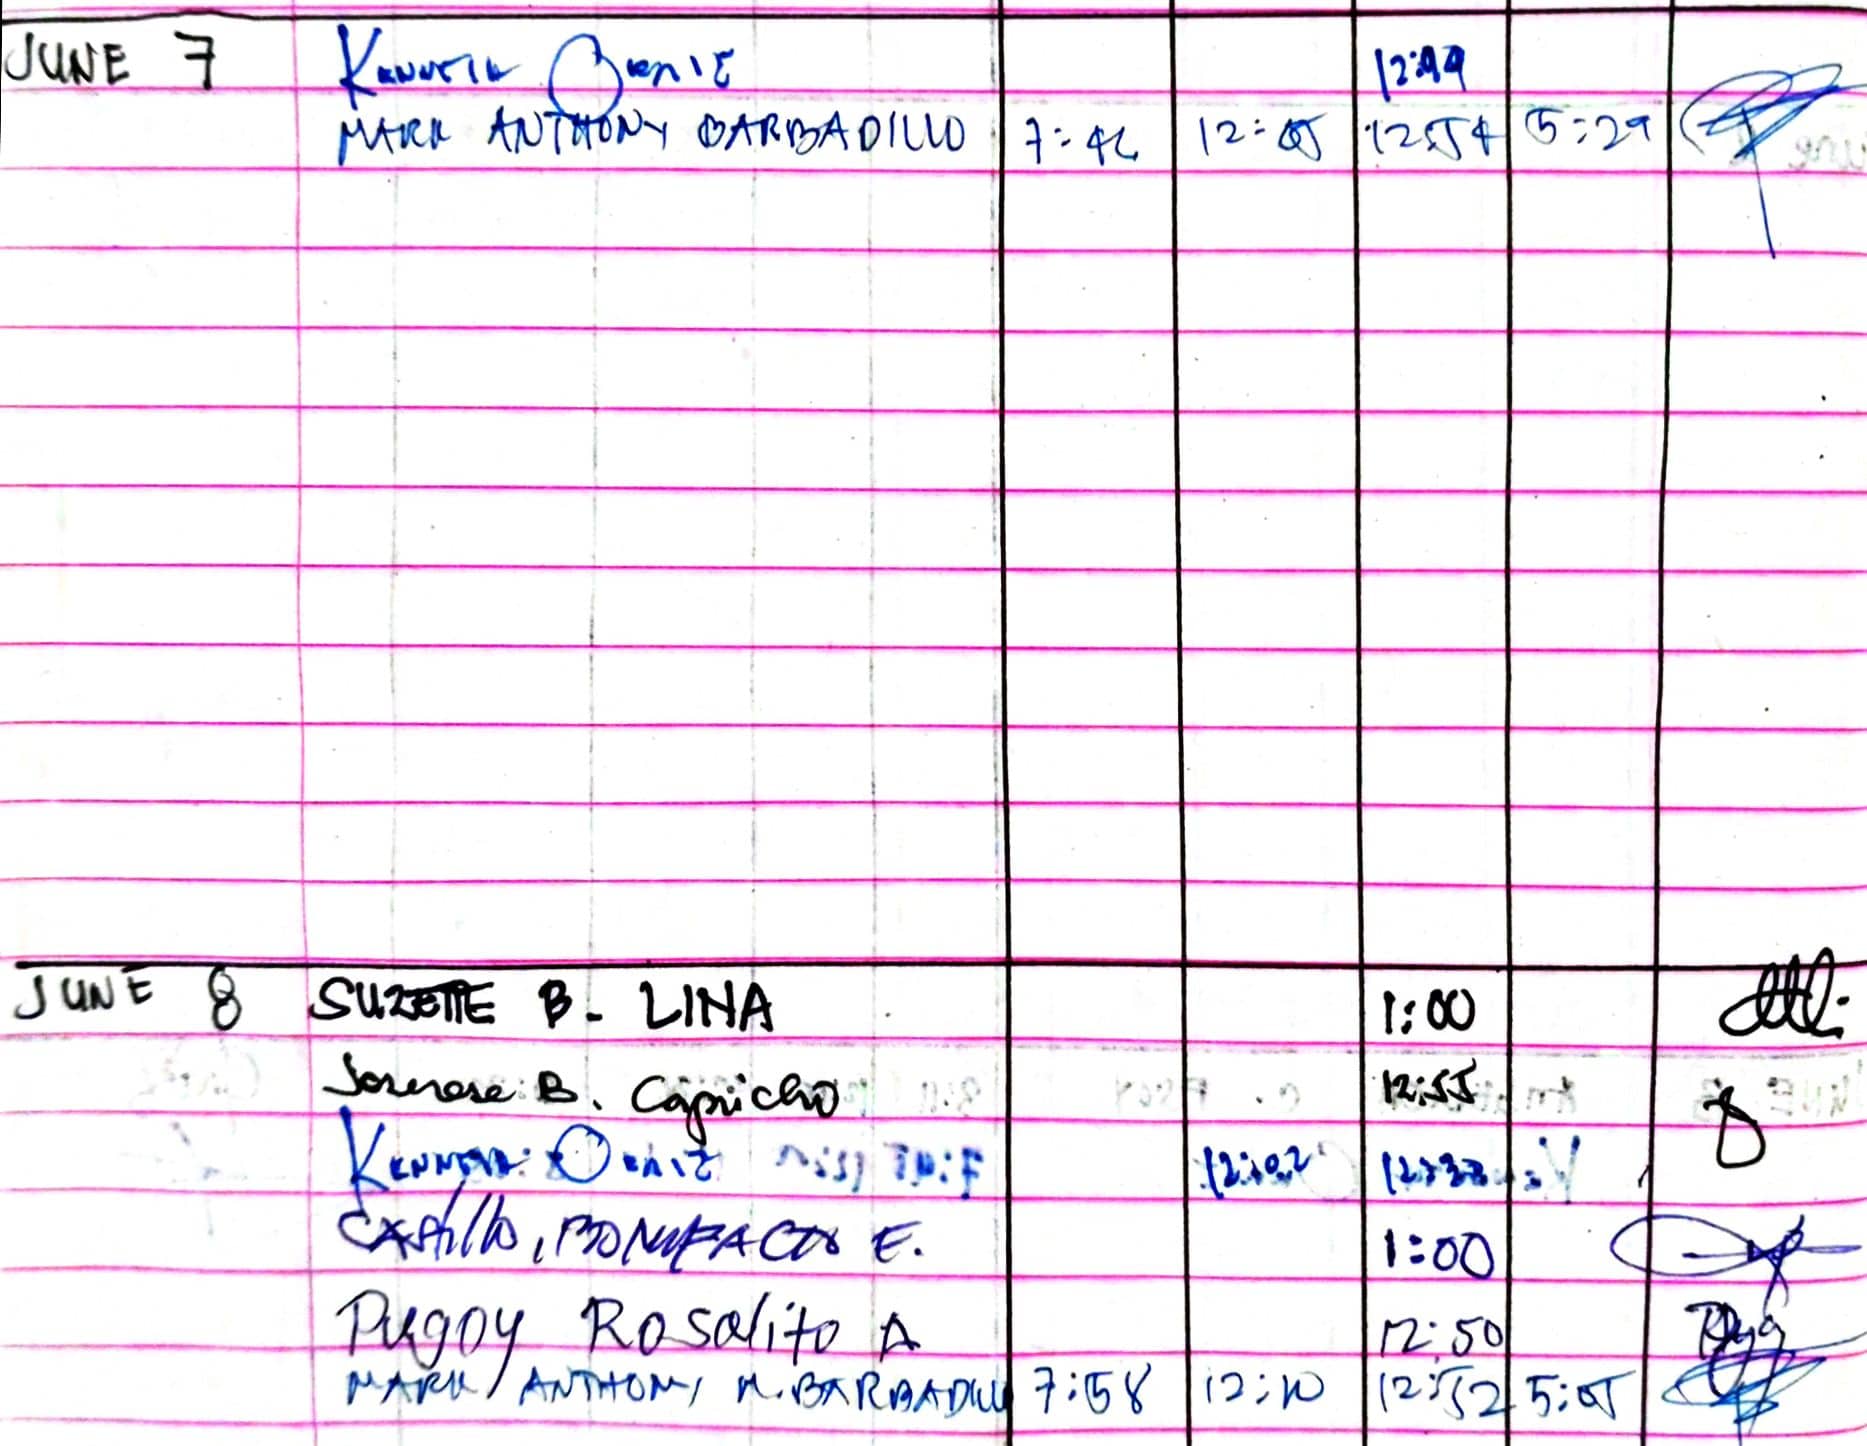 JUNE 7 KENNETH 12:49
MARK ANTHONY BARBADILLO 7:42 12:05 12:54 5:29
JUNE 8 SUZETTE B. LINA 1:00
B. Capricho 12:55
KENNETH 12:02
CAStillo, BONIFACIO E. 1:00
Pugoy Rosalito A 12:50
MARK ANTHONY M. BARBADILLO 7:58 12:10 12:52 5:05